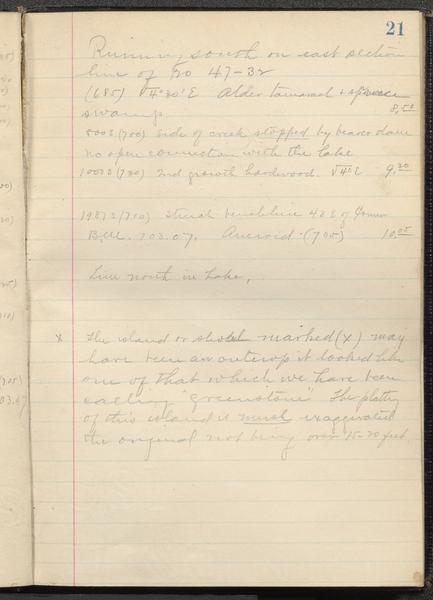 21
Running south on east section
line of 20 47-32
(685) V4°30'E Alder tamarack + spruce
swamp. 8.50
800 S (700) side of creek stopped by beaver dam
no open connection with the lake
1000 S (730) 2nd growth hardwood. V4°E 9.20
1987 S (710) Struck 40 E of Corner
B.M. 703.07. Aneroid (705) 10.05
Line north in Lake,
x The island or shoal marked (x) may
have been an outcrop it looked like
one of that which we have been
calling "greenstone" The platting
of this island is much exaggerated
the original not being over 15-20 feet.